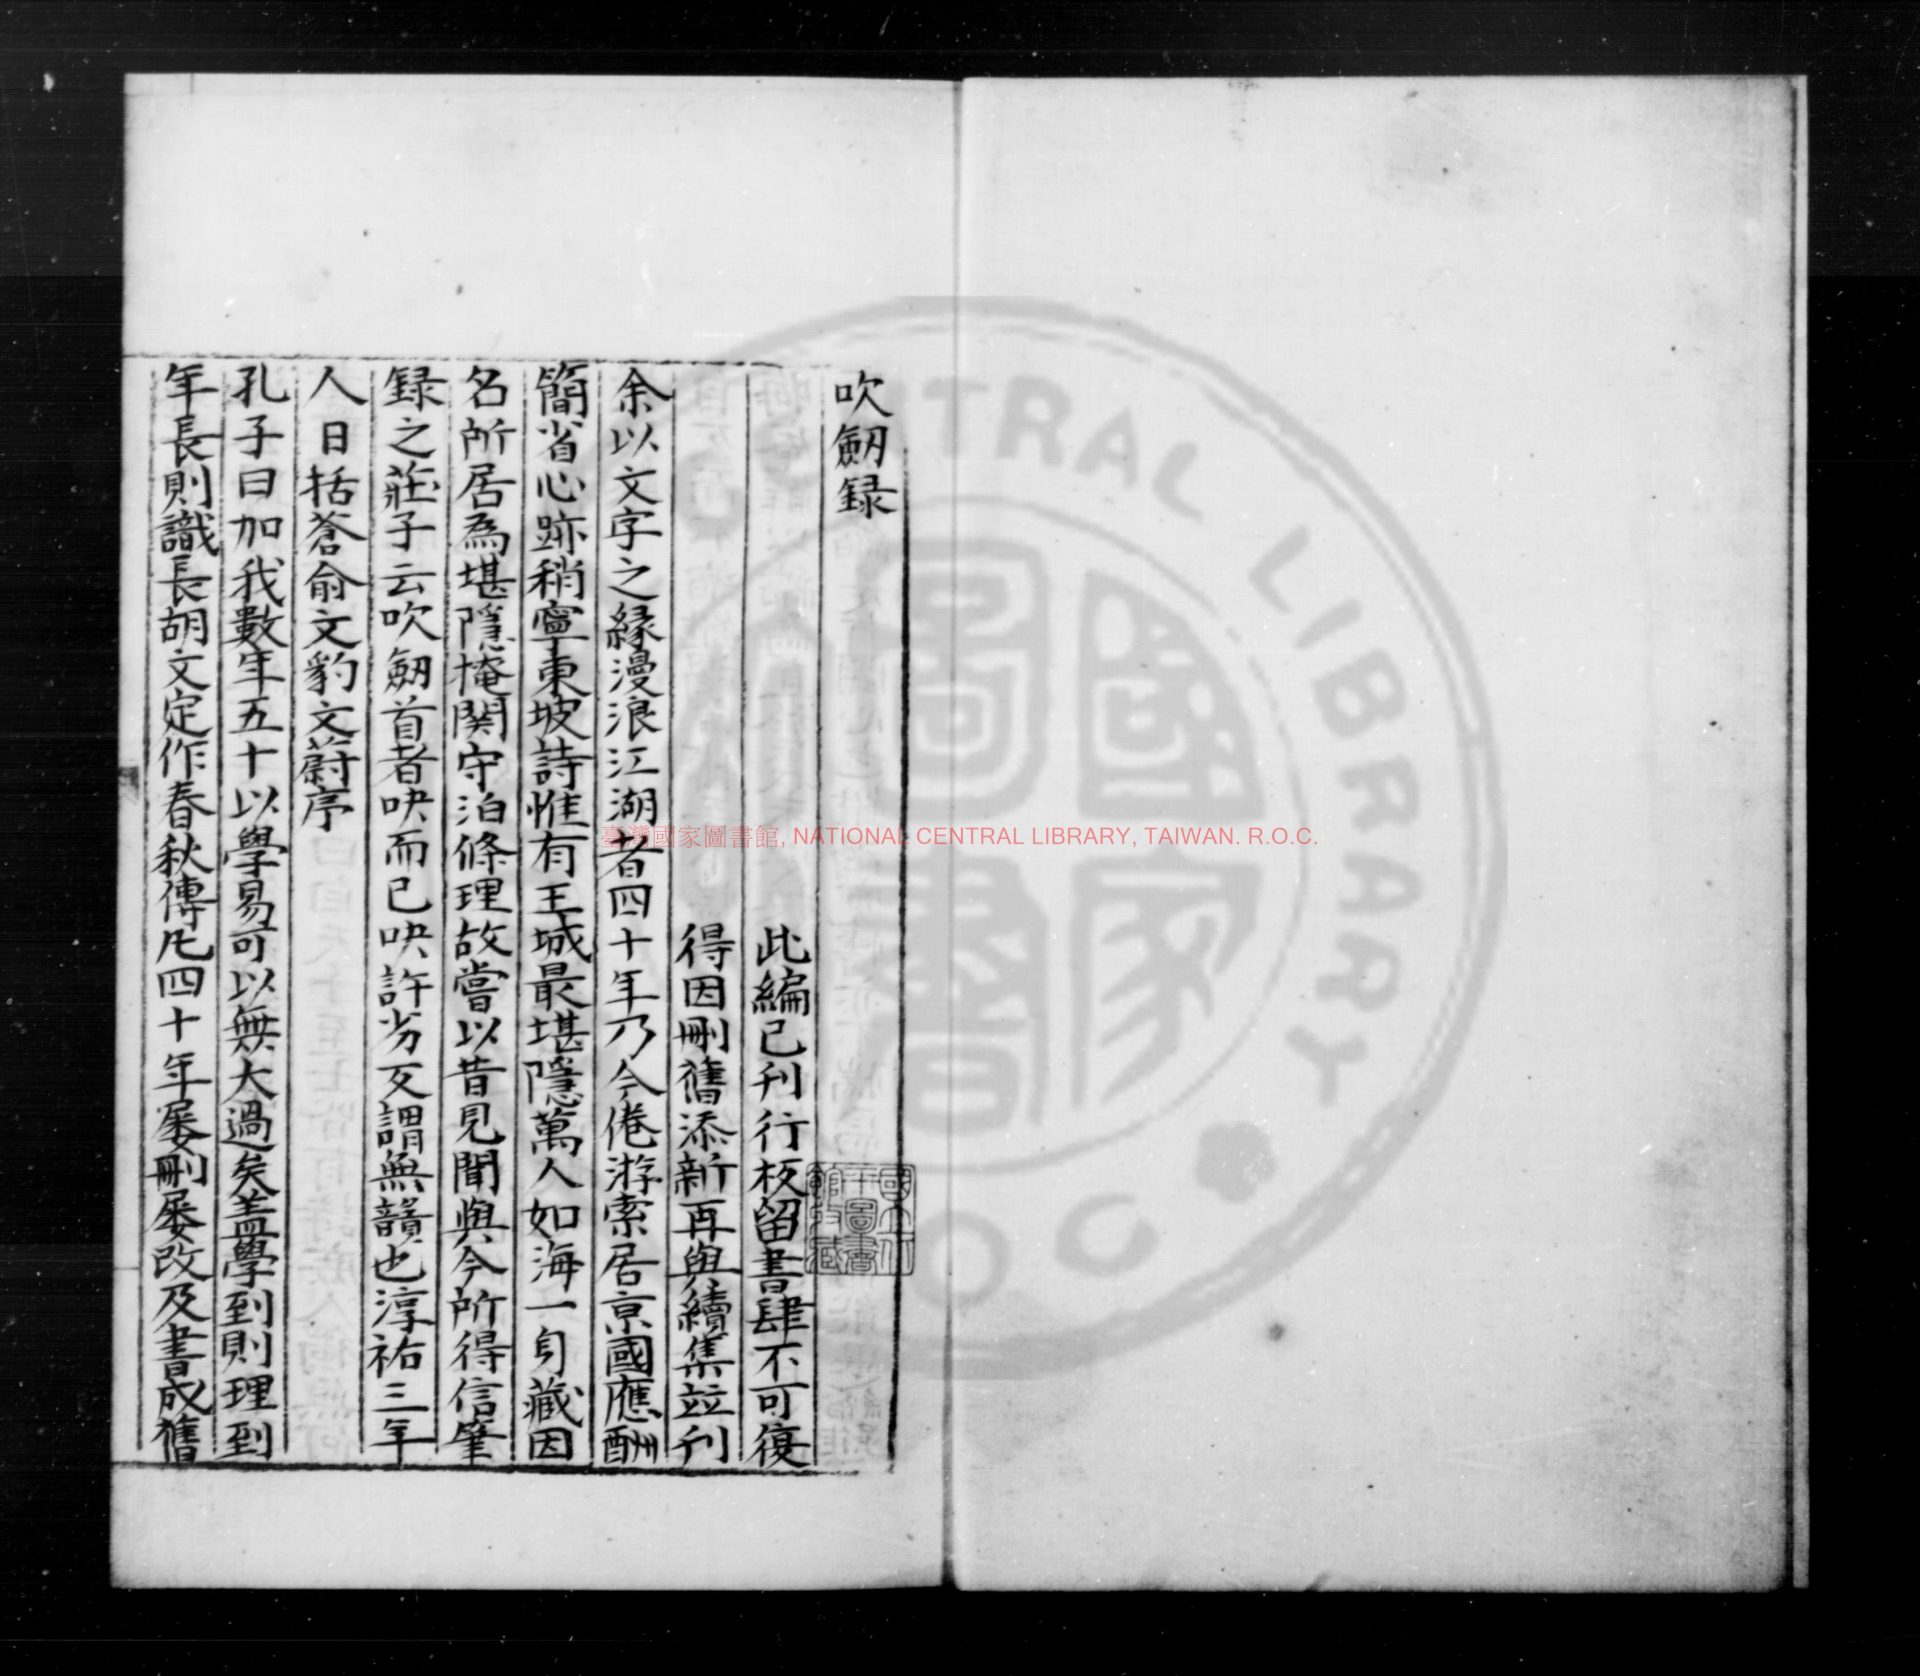 吹劔録
此編已刊行板留書肆不可復
得因刪舊添新再與續集竝刊
余以文字之緣漫浪江湖者四十年乃今倦游索居京國應酬
簡省心跡稍寧東坡詩惟有王城最堪隱萬人如海一身藏因
名所居為堪隱掩関守泊條理故嘗以昔見聞與今所得信筆
録之莊子云吹劔首者吷而已吷許劣反謂無韻也淳祐三年
人日括蒼俞文豹文蔚序
孔子曰加我數年五十以學易可以無大過矣盖學到則理到
年長則識長胡文定作春秋傳凡四十年屡刪屡改及書成舊
國立中央圖書館收藏
臺灣國家圖書館, NATIONAL CENTRAL LIBRARY, TAIWAN. R.O.C.
CENTRAL LIBRARY
國家圖書